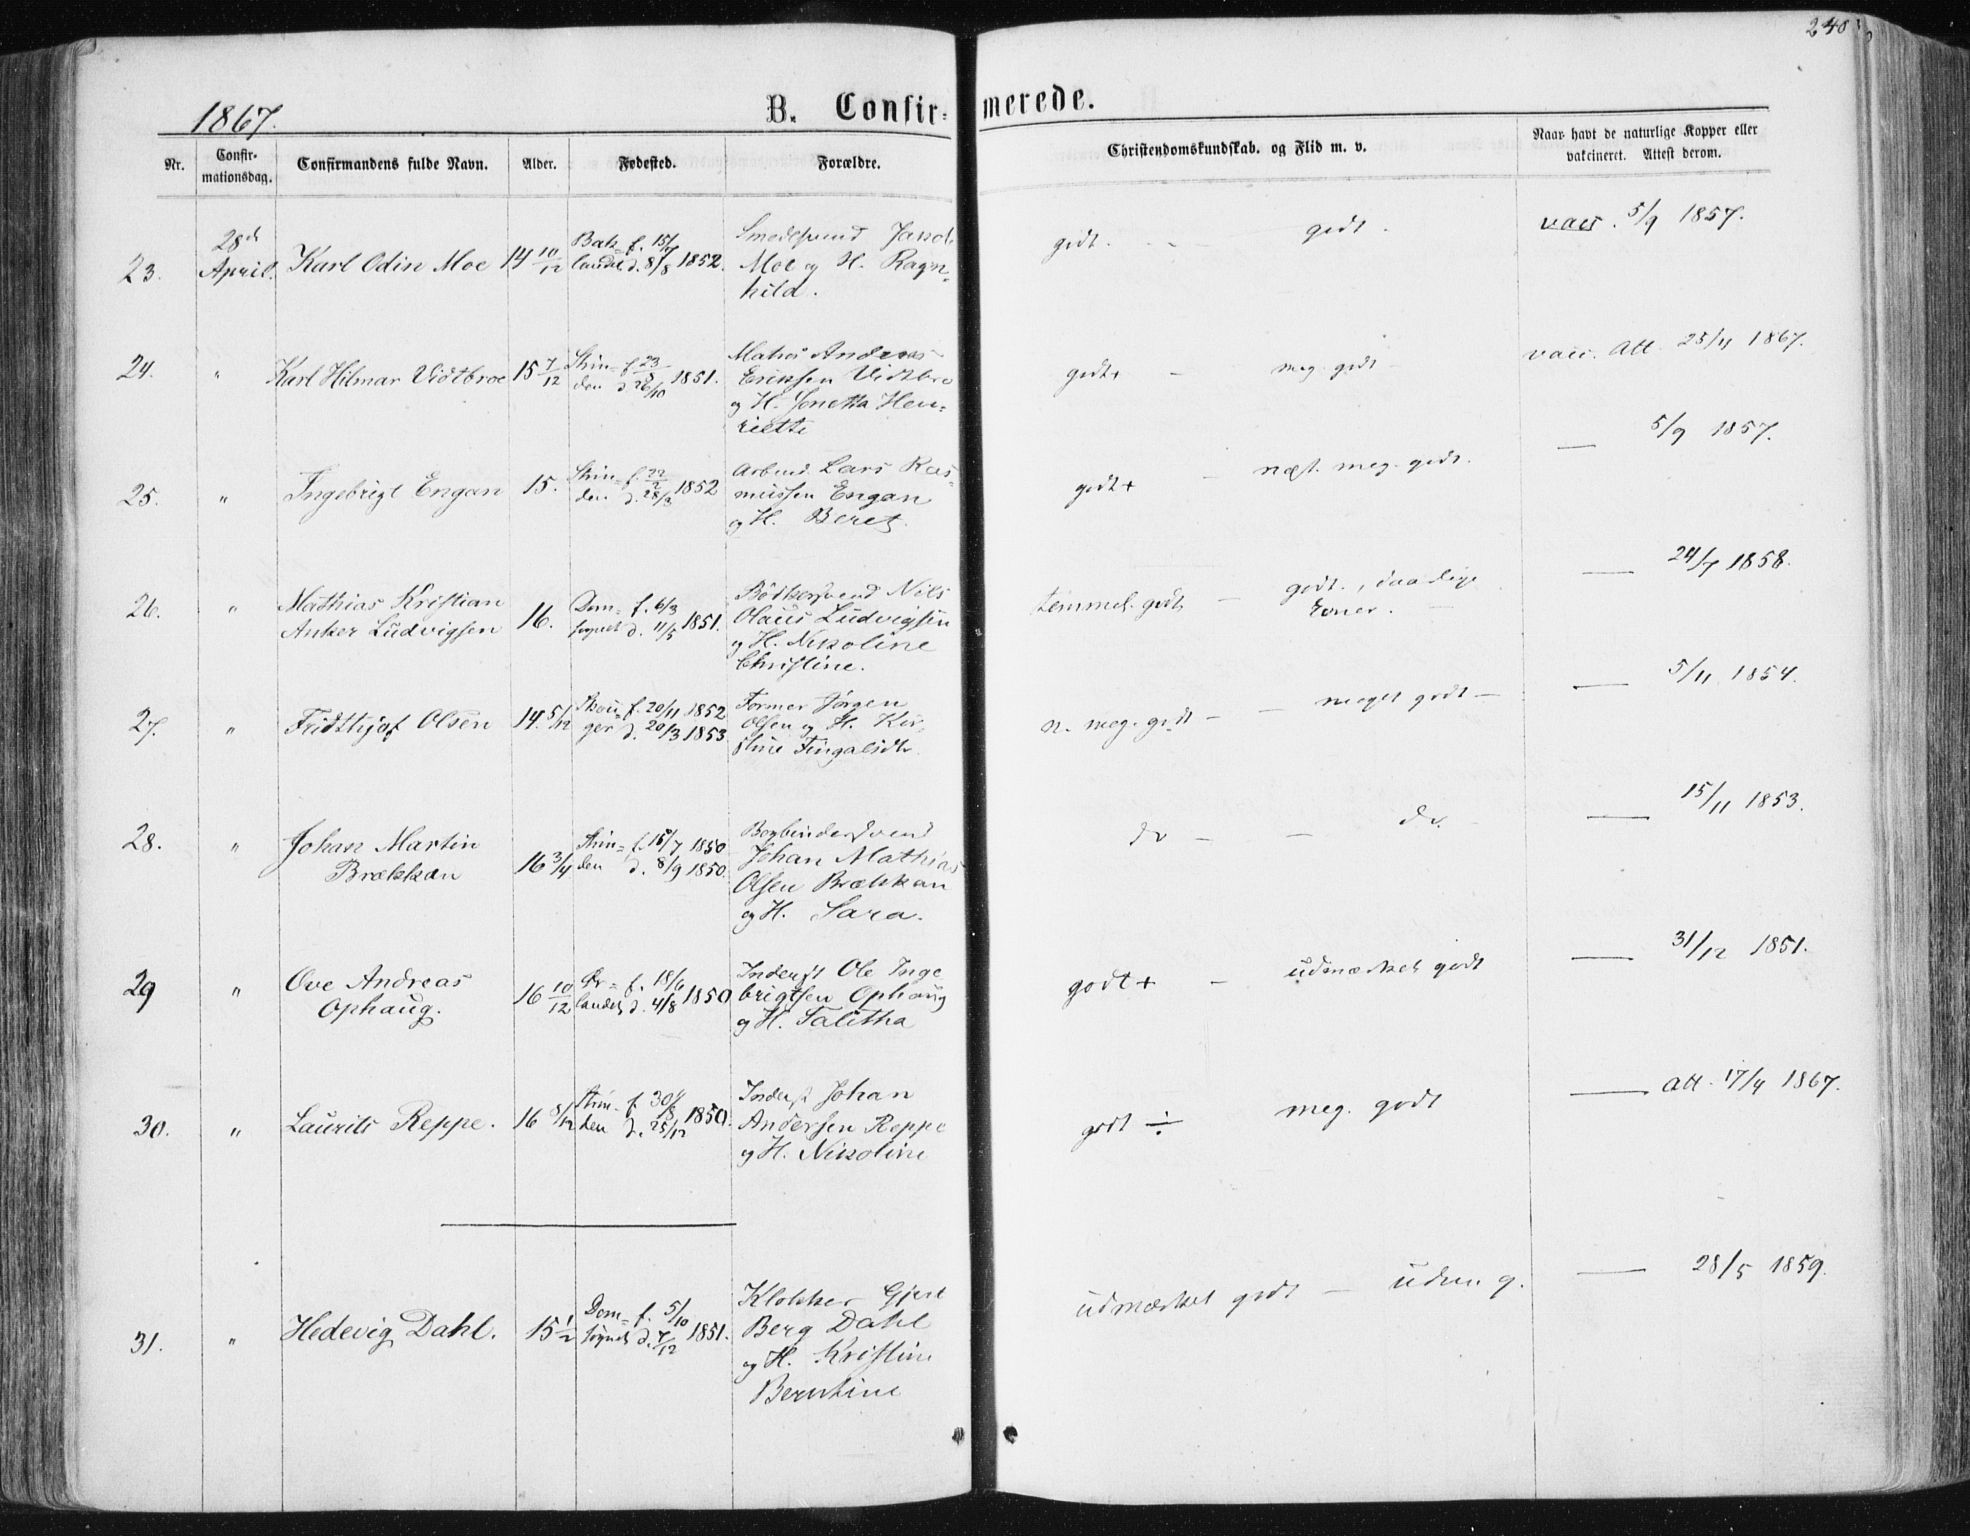 240
1867.
B. Confirmerede.
Nr.
Confirmationsdag.
Confirmandens fulde Navn.
Alder.
Fødested.
Forældre.
Christendomskundskab. og Flid m. v.
Naar havt de naturlige Kopper eller
vakcineret. Attest derom.
23. 28de April. Karl Odin Moe 14 10/12
Bak= f. 15/7
landet d. 8/8 1852.
Smedsvend Jakob
Moe og H. Ragn=
hild.
godt. - godt. vacc. 5/9 1857.
24. " Karl Hilmar Vidtbroe 15 7/12
Strin= f. 23/9
den d. 26/10 1851.
Andreas
Eriksen Vidtbro
og H. Jonetta Hen=
riette
godt+ - meg. godt - vacc. Att. 23/4 1867.
25. " Ingebrigt Engan 15.
Strin= f. 22/2
den d. 28/3 1852
Arbmd. Lars Ras=
mussen Engan
og H. Beret.
godt+ - næst. meg. godt. — 5/9 1857.
26. " Mathias Kristian
Anker Ludvigsen 16.
Dom= f. 6/3
sognet d. 11/5 1851.
Bødkersvend Nils
Olaus Ludvigsen
og H. Nikoline
Christine.
temmel. godt - godt., daarlige
Evner. — 24/7 1858.
27. " Fridthjof Olsen 14. 5/12
f. 20/11 1852
ger d. 20/3 1853
Former Jørgen
Olsen og H. Kir=
stine Fingalsdtr.
n. meg. godt - - meget godt - — 5/11 1854.
28. " Johan Martin
Brækkan 16 3/4
Strin= f. 15/7 1850
den d. 8/9 1850.
Bogbindersvend
Johan Mathias
Olsen Brækkan
og H. Sara.
do - - do. — 15/11 1853.
29 " Ove Andreas
Ophaug. 16 10/12
Ør= f. 18/6
landet d. 4/8 1850
Inderst Ole Inge
brigtsen Ophaug
og H. Talitha
godt + - udmærket godt — 31/12 1851.
30. " Laurits Reppe. 16 8/12
Strin- f. 30/8
den d. 25/12 1850.
Inderst Johan
Andersen Reppe
og H. Nikoline
godt ÷ meg. godt — Att. 17/4 1867.
31. " Hedevig Dahl. 15 1/2
Dom= f. 5/10
sognet d. 7/12 1851.
Klokker Gjert
Berg Dahl
og H. Kristine
Berntine
udmærket godt - udm. g. — 28/5 1859.